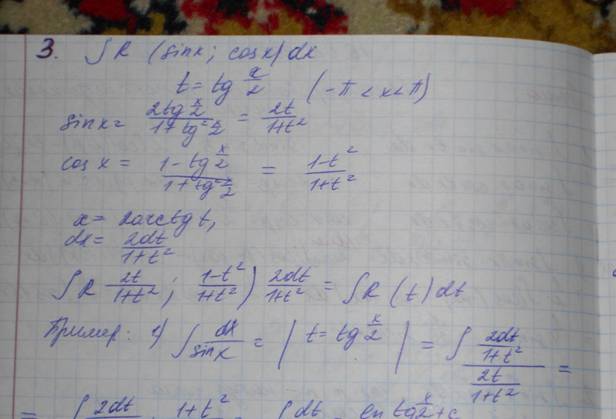 3. ∫R (sinx; cosx) dx
t = tg x/2 (-π < x < π)
sinx = 2tg x/2 / 1+tg² x/2 = 2t / 1+t²
cos x = 1-tg x/2 / 1+tg² x/2 = 1-t² / 1+t²
x = 2arctg t,
dx = 2dt / 1+t²
∫R 2t / 1+t² ; 1-t² / 1+t² ) 2dt / 1+t² = ∫R (t) dt
Пример: 1) ∫ dx / sinx = | t = tg x/2 | = ∫ 2dt / 1+t² / 2t / 1+t² =
= ∫ 2dt 1+t² ∫ dt = ln tg x/2 + c